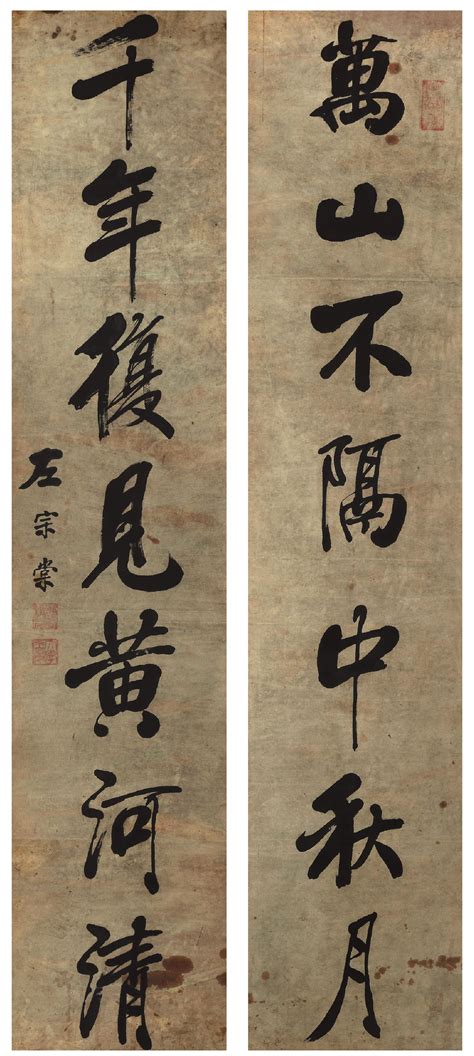 萬山不隔中秋月
千年復見黃河清
左宗棠